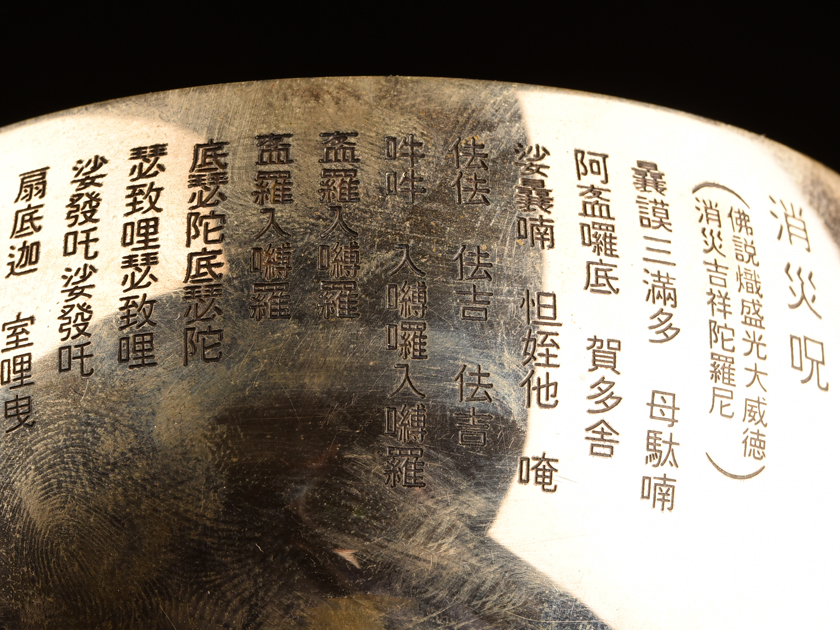 消災呪
（佛説熾盛光大威德
消災吉祥陀羅尼）
曩謨三滿多 母馱喃
阿盋囉底 賀多舍
娑曩喃 怛姪他 唵
佉佉 佉吉 佉
吽吽 入嚩囉入嚩羅
盋羅入嚩羅
盋羅入嚩羅
底瑟陀底瑟陀
瑟致哩瑟致哩
娑發吒娑發吒
扇底迦 室哩曳